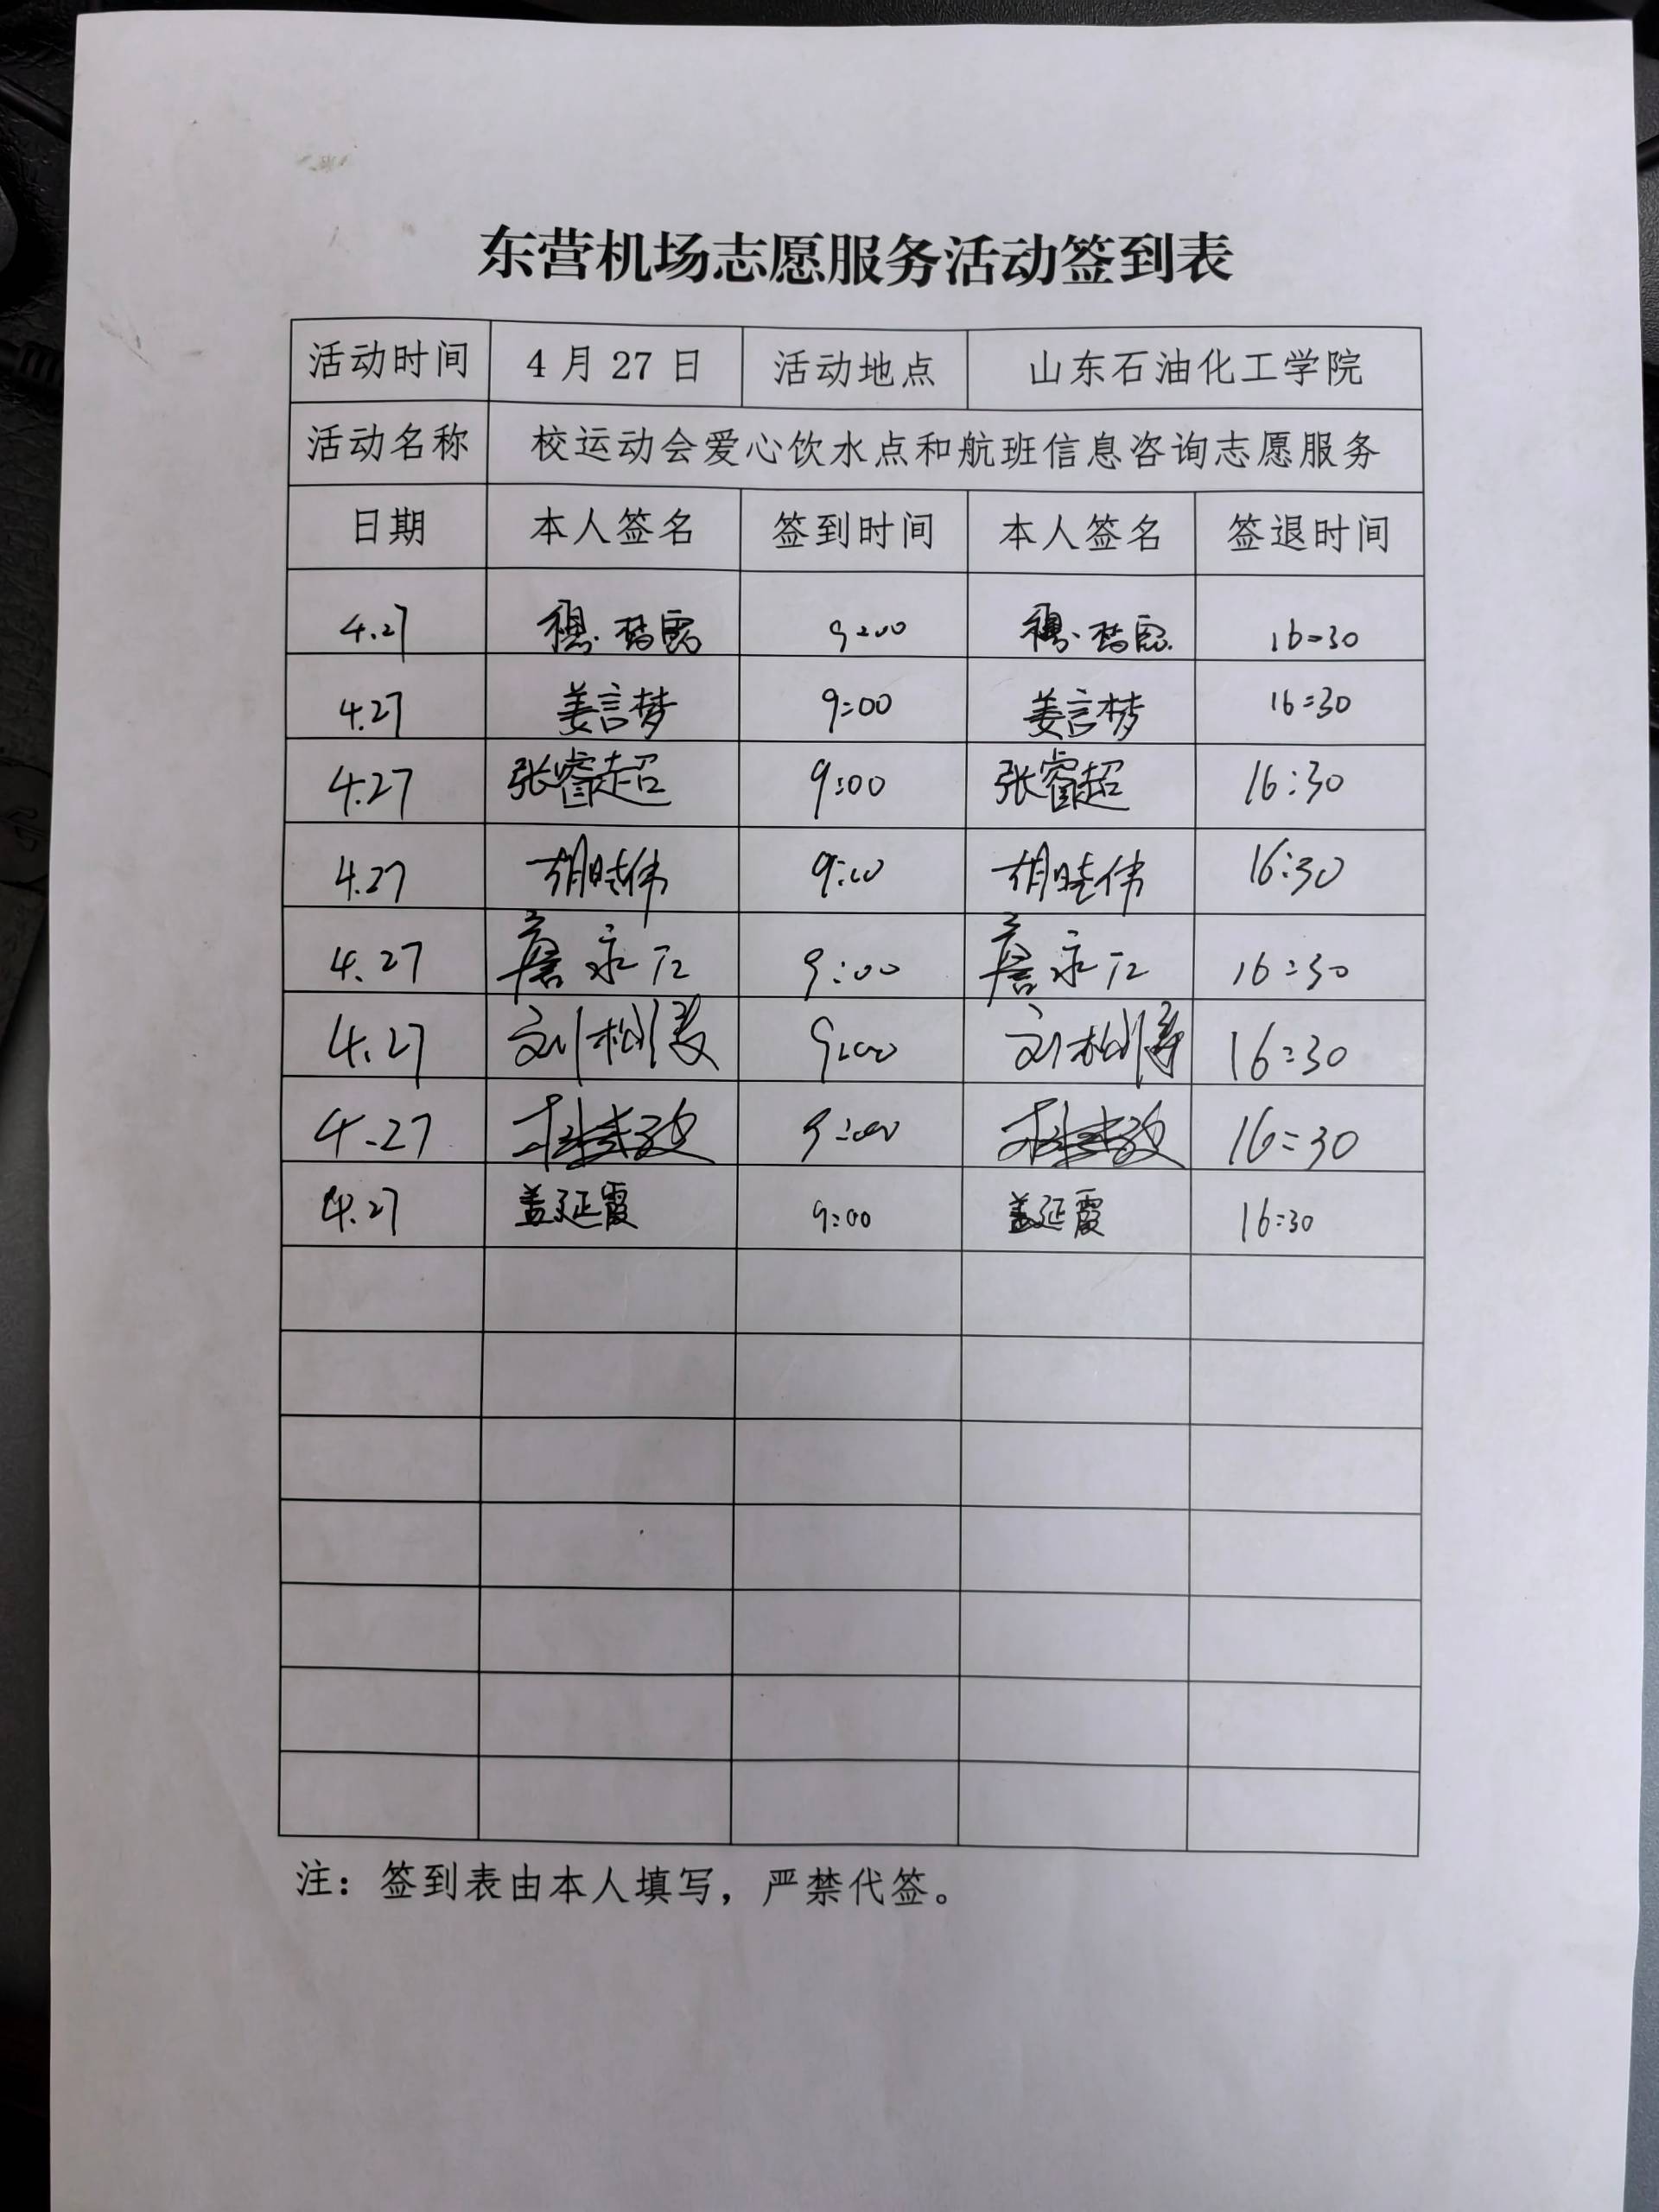 东营机场志愿服务活动签到表
活动时间 4月27日 活动地点 山东石油化工学院
活动名称 校运动会爱心饮水点和航班信息咨询志愿服务
日期 本人签名 签到时间 本人签名 签退时间
4.27 9:00 16:30
4.27 姜言梦 9:00 姜言梦 16:30
4.27 张睿超 9:00 张睿超 16:30
4.27 胡晓伟 9:00 胡晓伟 16:30
4.27 9:00 16:30
4.27 刘松涛 9:00 刘松涛 16:30
4.27 9:00 16:30
4.27 盖延霞 9:00 盖延霞 16:30
注：签到表由本人填写，严禁代签。